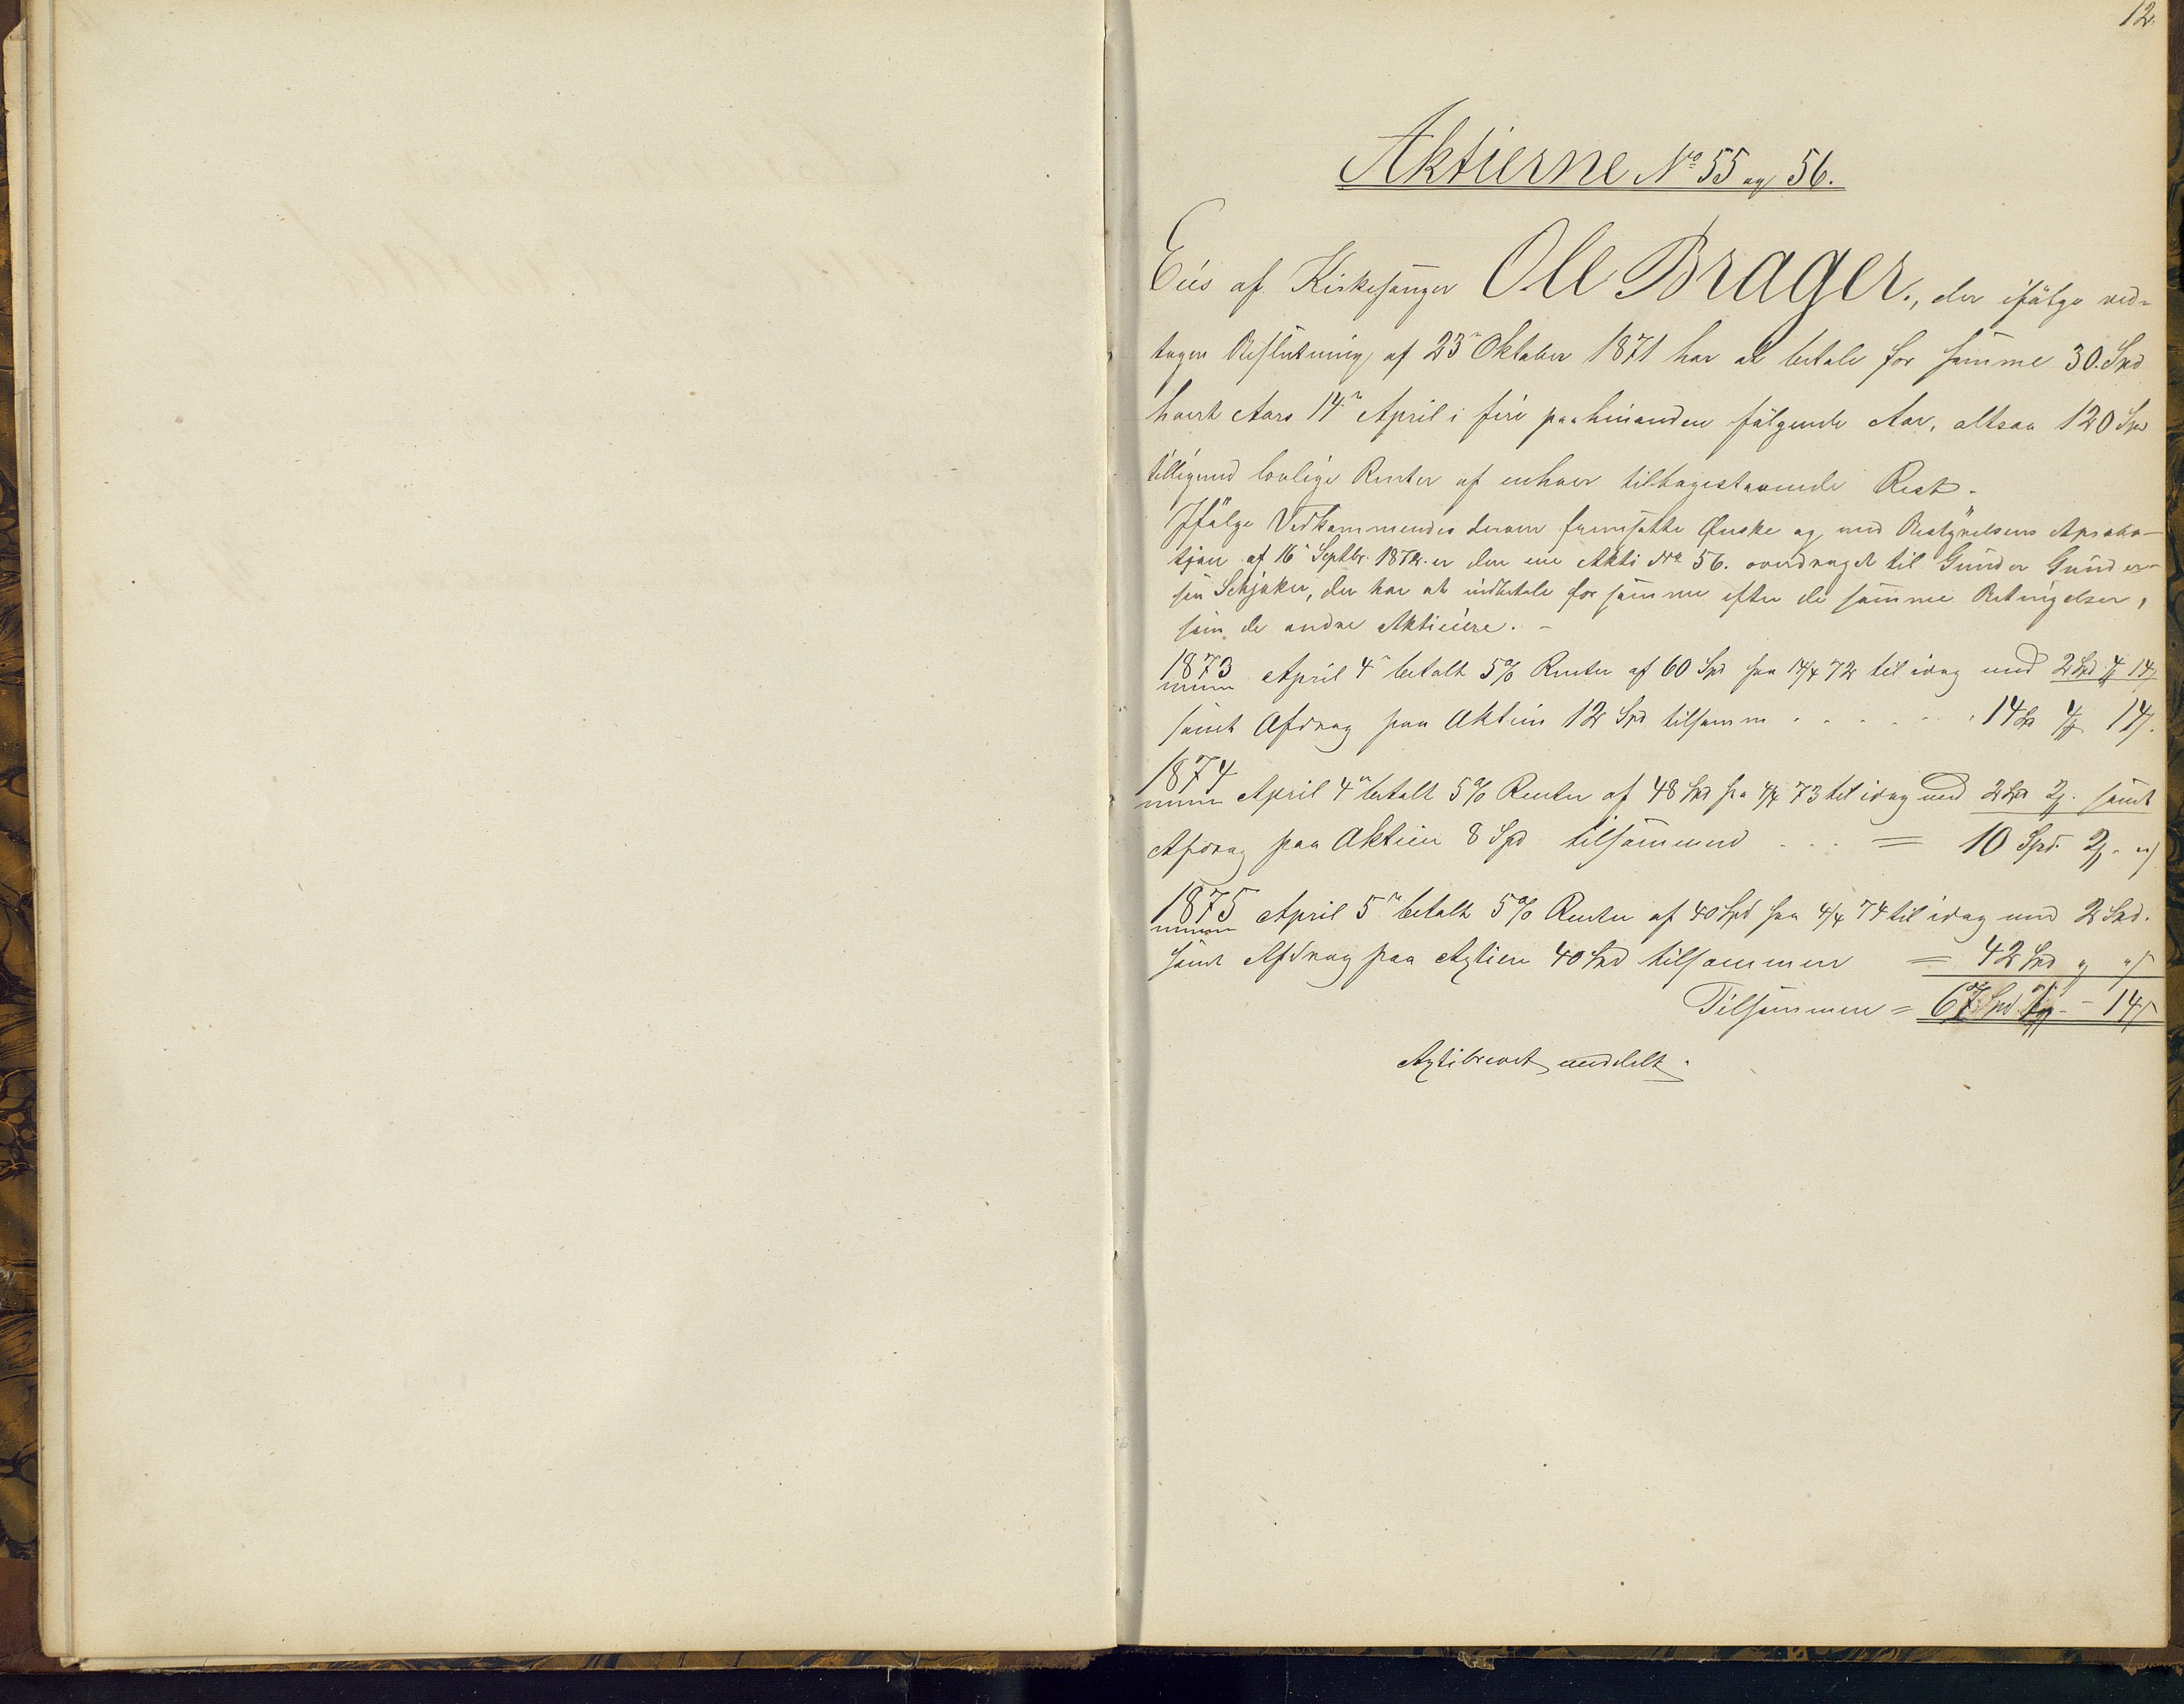 12.
Aktierne No 55 og 56.
Eies af Kirkesanger Ole Brager., der ifølge ved-
tagen Beslutning af 23de Oktober 1871 har at betale for samme 30. Spd
hvert Aars 14de April i fire paahinanden følgende Aar, altsaa 120 Spd
tilligemed lovlige Renter af enhver tilbagestaaende Rest.
Ifølge Vedkommendes derom fremsatte Ønske og med Bestyrelsens Aproba-
tjon af 16de Septbr. 1872. er den ene Aktie No 56. overdraget til Gunder Gunder-
sen Schjaker, der har at indbetale for samme efter de samme Betingelser,
som de andre Aktieeiere. –
1873 April 4de betalt 5% Renter af 60 Spd fra 14/4 72 til idag med 2 Spd 4 14
samt Afdrag paa Aktien 12 Spd tilsamm . . . . . . 14 Sp 4 14.
1874 April 4de betalt 5% Renter af 48 Spd fra 4/4 73 til idag med 2 Spd 2. samt
Afdrag paa Aktien 8 Spd tilsammend . . . = 10 Spd. 2. "
1875 April 5te betalt 5% Renter af 40 Spd fra 4/4 74 til idag med 2 Spd.
samt Afdrag paa Agtien 40 Spd tilsammen = 42 Spd " "
Tilsammen = 67 Spd - 14
Agtibrevet meddelt.